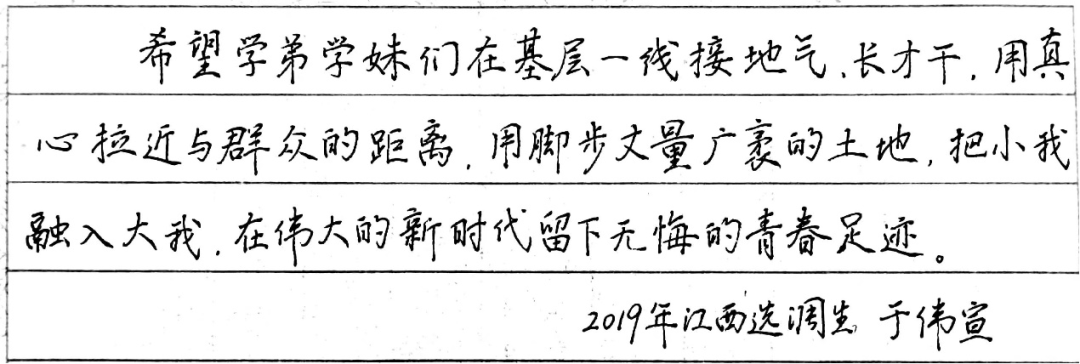 希望学弟学妹们在基层一线接地气、长才干，用真
心拉近与群众的距离，用脚步丈量广袤的土地，把小我
融入大我，在伟大的新时代留下无悔的青春足迹。
2019年江西选调生 于伟宣